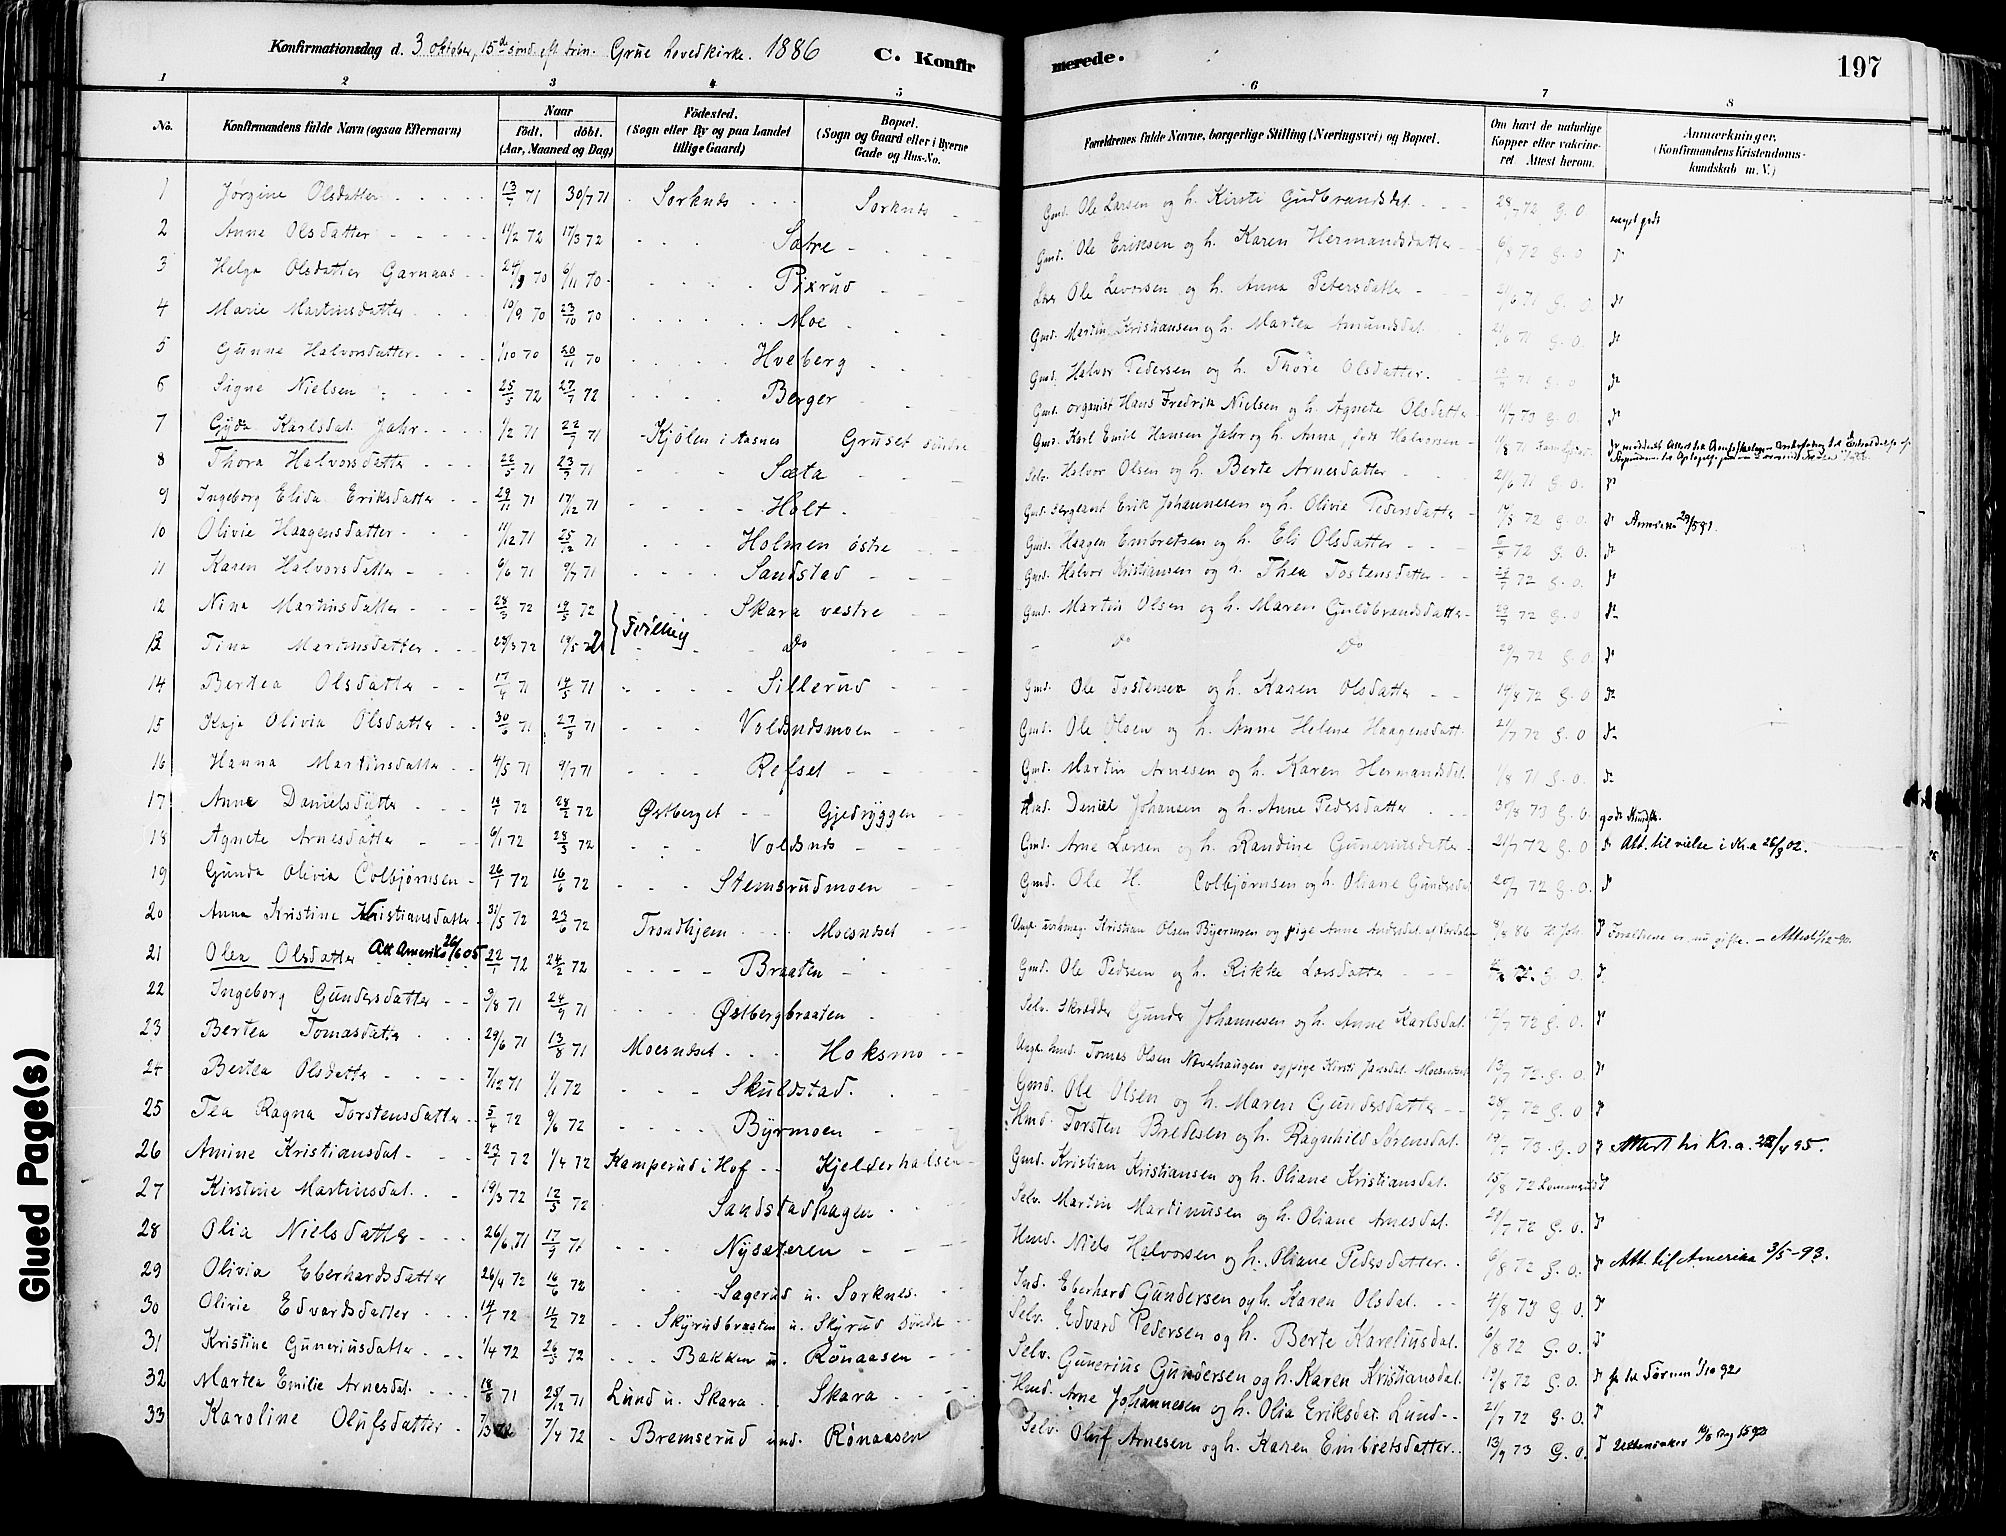 Konfirmationsdag d. 3 oktober, 15de sønd. eft. trin. Grue hovedkirke. 1886 C. Konfir
merede. 197
1 2 3 4 5 6 7 8
No. Konfirmandens fulde Navn (ogsaa Efternavn) Naar födt. döbt. (Aar, Maaned og Dag) Födested. (Sogn eller By og paa Landet tillige Gaard) Bopæl. (Sogn og Gaard eller i Byerne Gade og Hus-No. Forældrenes fulde Navne, borgerlige Stilling (Næringsvei) og Bopæl. Om havt de naturlige Kopper eller vakcineret. Attest herom. Anmærkninger. (Konfirmandens Kristendomskundskab m. V.)
1 Jørgine Olsdatter 13/7 71 30/7 71 Sorknes Sorknes Gmd. Ole Larsen og h. Kirsti Gudbrandsdat. 72 G. O. meget godt
2 Anne Olsdatter 11/2 72 17/3 72 Sætre Gmd. Ole Eriksen og h. Karen Hermandsdatter 6/8 72 G. O. do
3 Helga Olsdatter Garnaas 24/9 70 6/11 70 Pixrud Ole Levorsen og h. Anna Petersdatter 21/6 71 G. O. do
4 Marie Martinsdatter 19/9 70 23/10 70 Moe Gmd. Martin Kristiansen og h. Martea Amundsdat. 21/6 71 G. O. do
5 Gunne Halvorsdatter 1/10 70 20/11 70 Hveberg Gmd. Halvor Pedersen og h. Thore Olsdatter. 71 G. O do
6 Signe Nielsen 25/5 72 27/7 72 Berger Gmd. organist Hans Fredrik Nielsen og h. Agnete Olsdatter 11/7 73 G. O. do
7 Gyda Karlsdat. Jahr 1/2 71 22/7 71 Kjølen i Aasnes Gruset søndre Gmd. Karl Emil Hansen Jahr og h. Anna, født Halvorsen 1/8 71
8 Thora Halvorsdatter 22/5 71 23/7 71 Sæta Selv. Halvor Olsen og h. Berte Arnesdatter 21/6 71 G. O. do
9 Ingeborg Elida Eriksdatter 29/11 71 17/12 71 Holt Gmd. Sergeant Erik Johannesen og h. Olivie Pedersdatter 17/8 72 G. O. do
10 Olivie Haagensdatter 11/12 71 25/12 71 Holmen østre Gmd. Haagen Embretsen og h. Eli Olsdatter 72 G. O. do
11 Karen Halvorsdatter 6/6 71 9/7 71 Sandstad Gmd. Halvor Kristiansen og h. Thea Tostensdatter 72 G. O. do
12 Nina Martinsdatter 28/3 72 19/5 72 Skara vestre Gmd. Martin Olsen og h. Maren Guldbrandsdatter 29/7 72 G. O do
Tvilling
13 Tina Martinsdatter 28/3 72 19/5 72 do do do 29/7 72 G. O. do
14 Bertea Olsdatter 17/4 71 14/5 71 Sillerud Gmd. Ole Tostensen og h. Karen Olsdatter 19/8 72 G. O do
15 Kaja Olivia Olsdatter 30/6 71 27/8 71 Voldsndsmoen Gmd. Ole Olsen og h. Anne Helene Haagensdatt. 21/7 72 G. O do
16 Hanna Martinsdatter 4/5 71 9/7 71 Refset Gmd. Martin Arnesen og h. Karen Hermandsdat. 1/8 71 G. O do
17 Anne Danielsdatter 72 28/2 72 Østberget Gjedryggen Hmd. Daniel Johansen og h. Anne Pedersdatter 30/8 73 G. O. god Kundsk.
18 Agnete Arnesdatter 6/1 72 28/3 72 Voldsnds Gmd. Arne Larsen og h. Randine Guneriusdatter 21/7 72 G. O do Att. til vielse i Kr.a 26/3 02.
19 Gunda Olivia Colbjørnsen 26/1 72 16/6 72 Stemsrudmoen Gmd. Ole H. Colbjørnsen og h. Oliane Gundersdat 20/7 72 G. O. do
20 Anna Kristine Kristiansdatter 31/5 72 23/6 72 Trondhjem Moesndset Ungk. Kristian Olsen Byermoen og pige Anne Andersdat. 9/8 86 do Forældrene er nu gifte.
21 Olea Olsdatter Att Amerika 26/6 05 22/1 72 24/2 72 Braaten Gmd. Ole Pedersen og h. Rikke Larsdatter 72 G. O. do
22 Ingeborg Gundersdatter 3/8 71 24/9 71 Østbergbraaten Selv. Skrædder Gunder Johannesen og h. Anne Karlsdat. 12/7 72 G. O. do
23 Bertea Tomasdatter 29/6 71 13/8 71 Moesndset Hoksmo Ungk. hmd. Tomas Olsen Næverhaugen og pige Kirsti Jonsdat. Moesndset 13/7 72 G. O. do
24 Bertea Olsdatter 7/12 71 1/1 72 Skuldstad Gmd. Ole Olsen og h. Maren Gundersdatter 28/7 72 G. O do
25 Tea Ragna Torstensdatter 5/4 72 9/6 72 Byrmoen Hmd. Torsten Bredesen og h. Ragnhild Sørensdat. 19/7 73 G. O do Attest til Kr.a. 28/4 95.
26 Amine Kristiansdat. 23/1 72 1/4 72 Kamperud i Hof Kjelderhalsen Gmd. Kristian Kristiansen og h. Oliane Kristiansdat. 15/8 72 do
27 Kirstine Martinusdat. 19/3 72 12/5 72 Sandstadhagen Selv. Martin Martinusen og h. Oliane Arnesdat. 29/7 72 G. O. do
28 Olia Nielsdatter 26/6 71 17/9 71 Nysæteren Hmd. Niels Halvorsen og h. Oliane Pedersdatter 6/8 72 G. O. do Att. til Amerika 3/5-93.
29 Olivia Eberhardsdatter 26/4 72 16/6 72 Sagerud u. Sorknes Ind. Eberhard Gundersen og h. Karen Olsdat. 4/8 73 G. O. do
30 Olivie Edvardsdatter 14/1 72 11/2 72 Skyrudbraaten u. Skyrud søndre Selv. Edvard Pedersen og h. Berte Kareliusdat. 6/8 72 G. O. do
31 Kristine Guneriusdatter 1/4 72 26/5 72 Bakken u. Rønaasen Selv. Gunerius Gundersen og h. Karen Kristiansdat. 19/8 72 G. O. do
32 Martea Emilie Arnesdat. 18/8 71 25/12 71 Lund u. Skara Skara Hmd. Arne Johannesen og h. Olia Eriksdat. Lund 21/7 72 G. O. do
33 Karoline Olufsdatter 7/3 72 7/4 72 Bremserud und. Rønaasen Selv. Oluf Arnesen og h. Karen Embretsdatter 13/9 73 G. O. do
Glued Page(s)